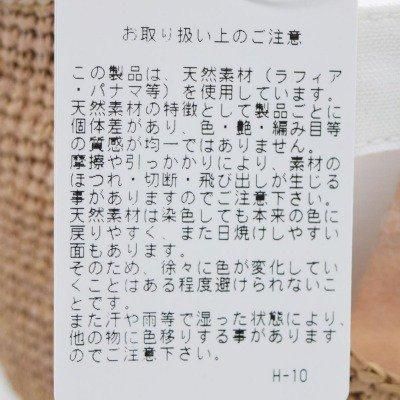 お取り扱い上のご注意
この製品は、天然素材（ラフィア
・パナマ等）を使用しています。
天然素材の特徴として製品ごとに
個体差があり、色・艶・編み目等
の質感が均一ではありません。
摩擦や引っかかりにより、素材の
ほつれ・切断・飛び出しが生じる
事がありますのでご注意下さい。
天然素材は染色しても本来の色に
戻りやすく、また日焼けしやすい
面もあります。
そのため、徐々に色が変化してい
くことはある程度避けられないこ
とです。
また汗や雨等で湿った状態により、
他の物に色移りする事があります
のでご注意下さい。
H-10